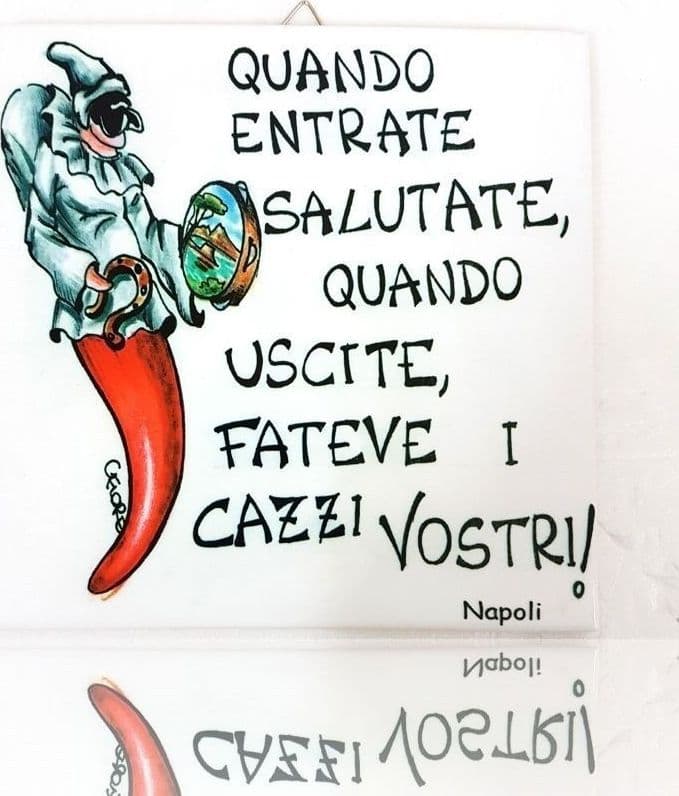 QUANDO
ENTRATE
SALUTATE,
QUANDO
USCITE,
FATEVE I
CAZZI VOSTRI!
Napoli